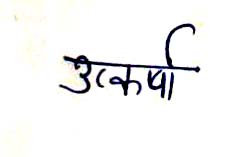 उत्कर्षा